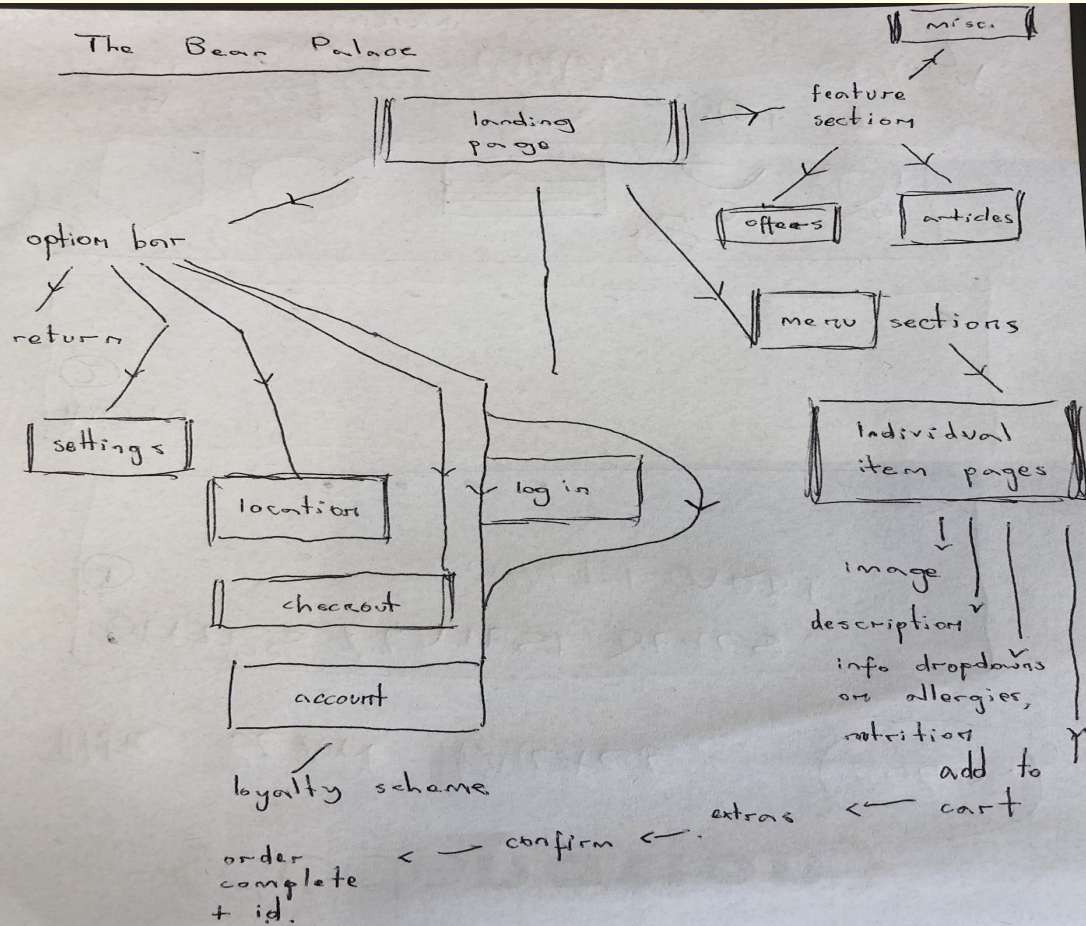 The Bean Palace
misc.
landing
page
feature
section
offers
articles
option bar
return
menu sections
settings
location
log in
Individual
item pages
checkout
account
image
description
info dropdowns
on allergies,
nutrition
add to
cart
extras
confirm
loyalty scheme
order
complete
+ id.